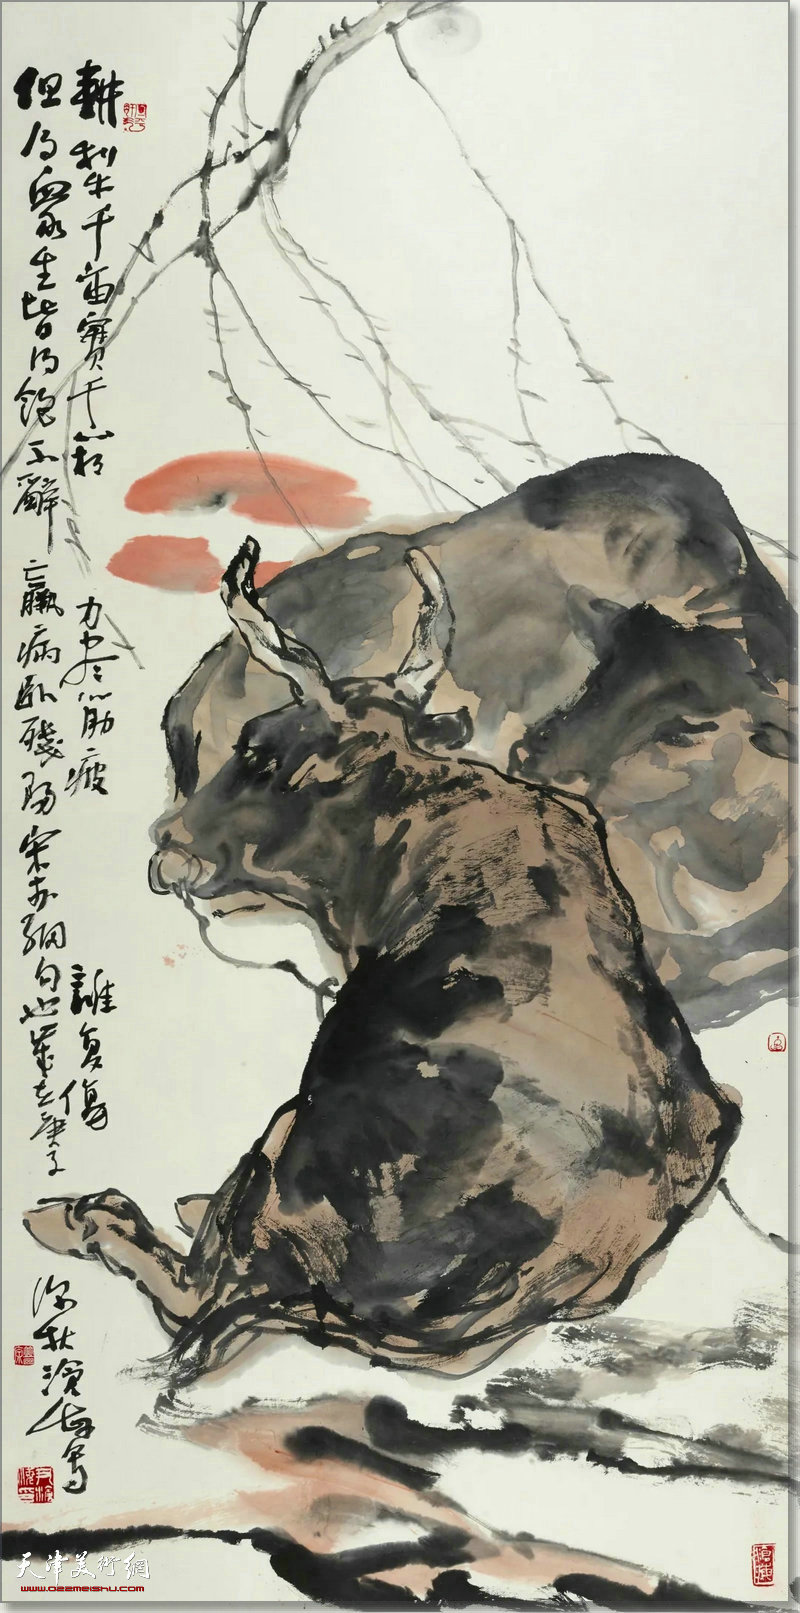 耕犁千亩实千箱
力尽筋疲
谁复伤
但得众生皆得饱不辞
羸病卧残阳宋李纲句也岁在庚子
深秋沧海写
天津美術網
www.022meishu.com